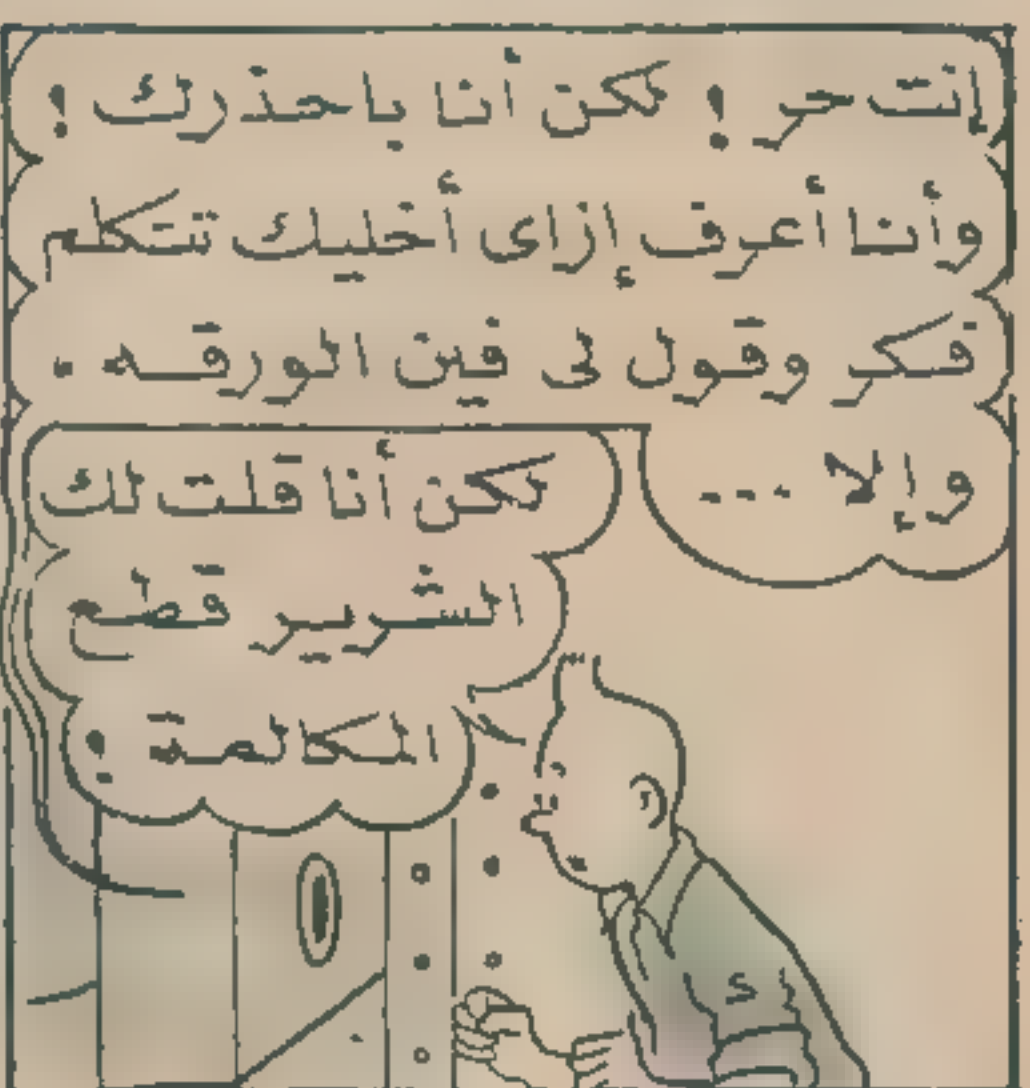 إنت حر ! لكن أنا باحذرك !
وأنا أعرف إزاى أخليك تتكلم
فكر وقول لى فين الورقه .
وإلا ...
لكن أنا قلت لك
الشرير قطع
المكالمة !